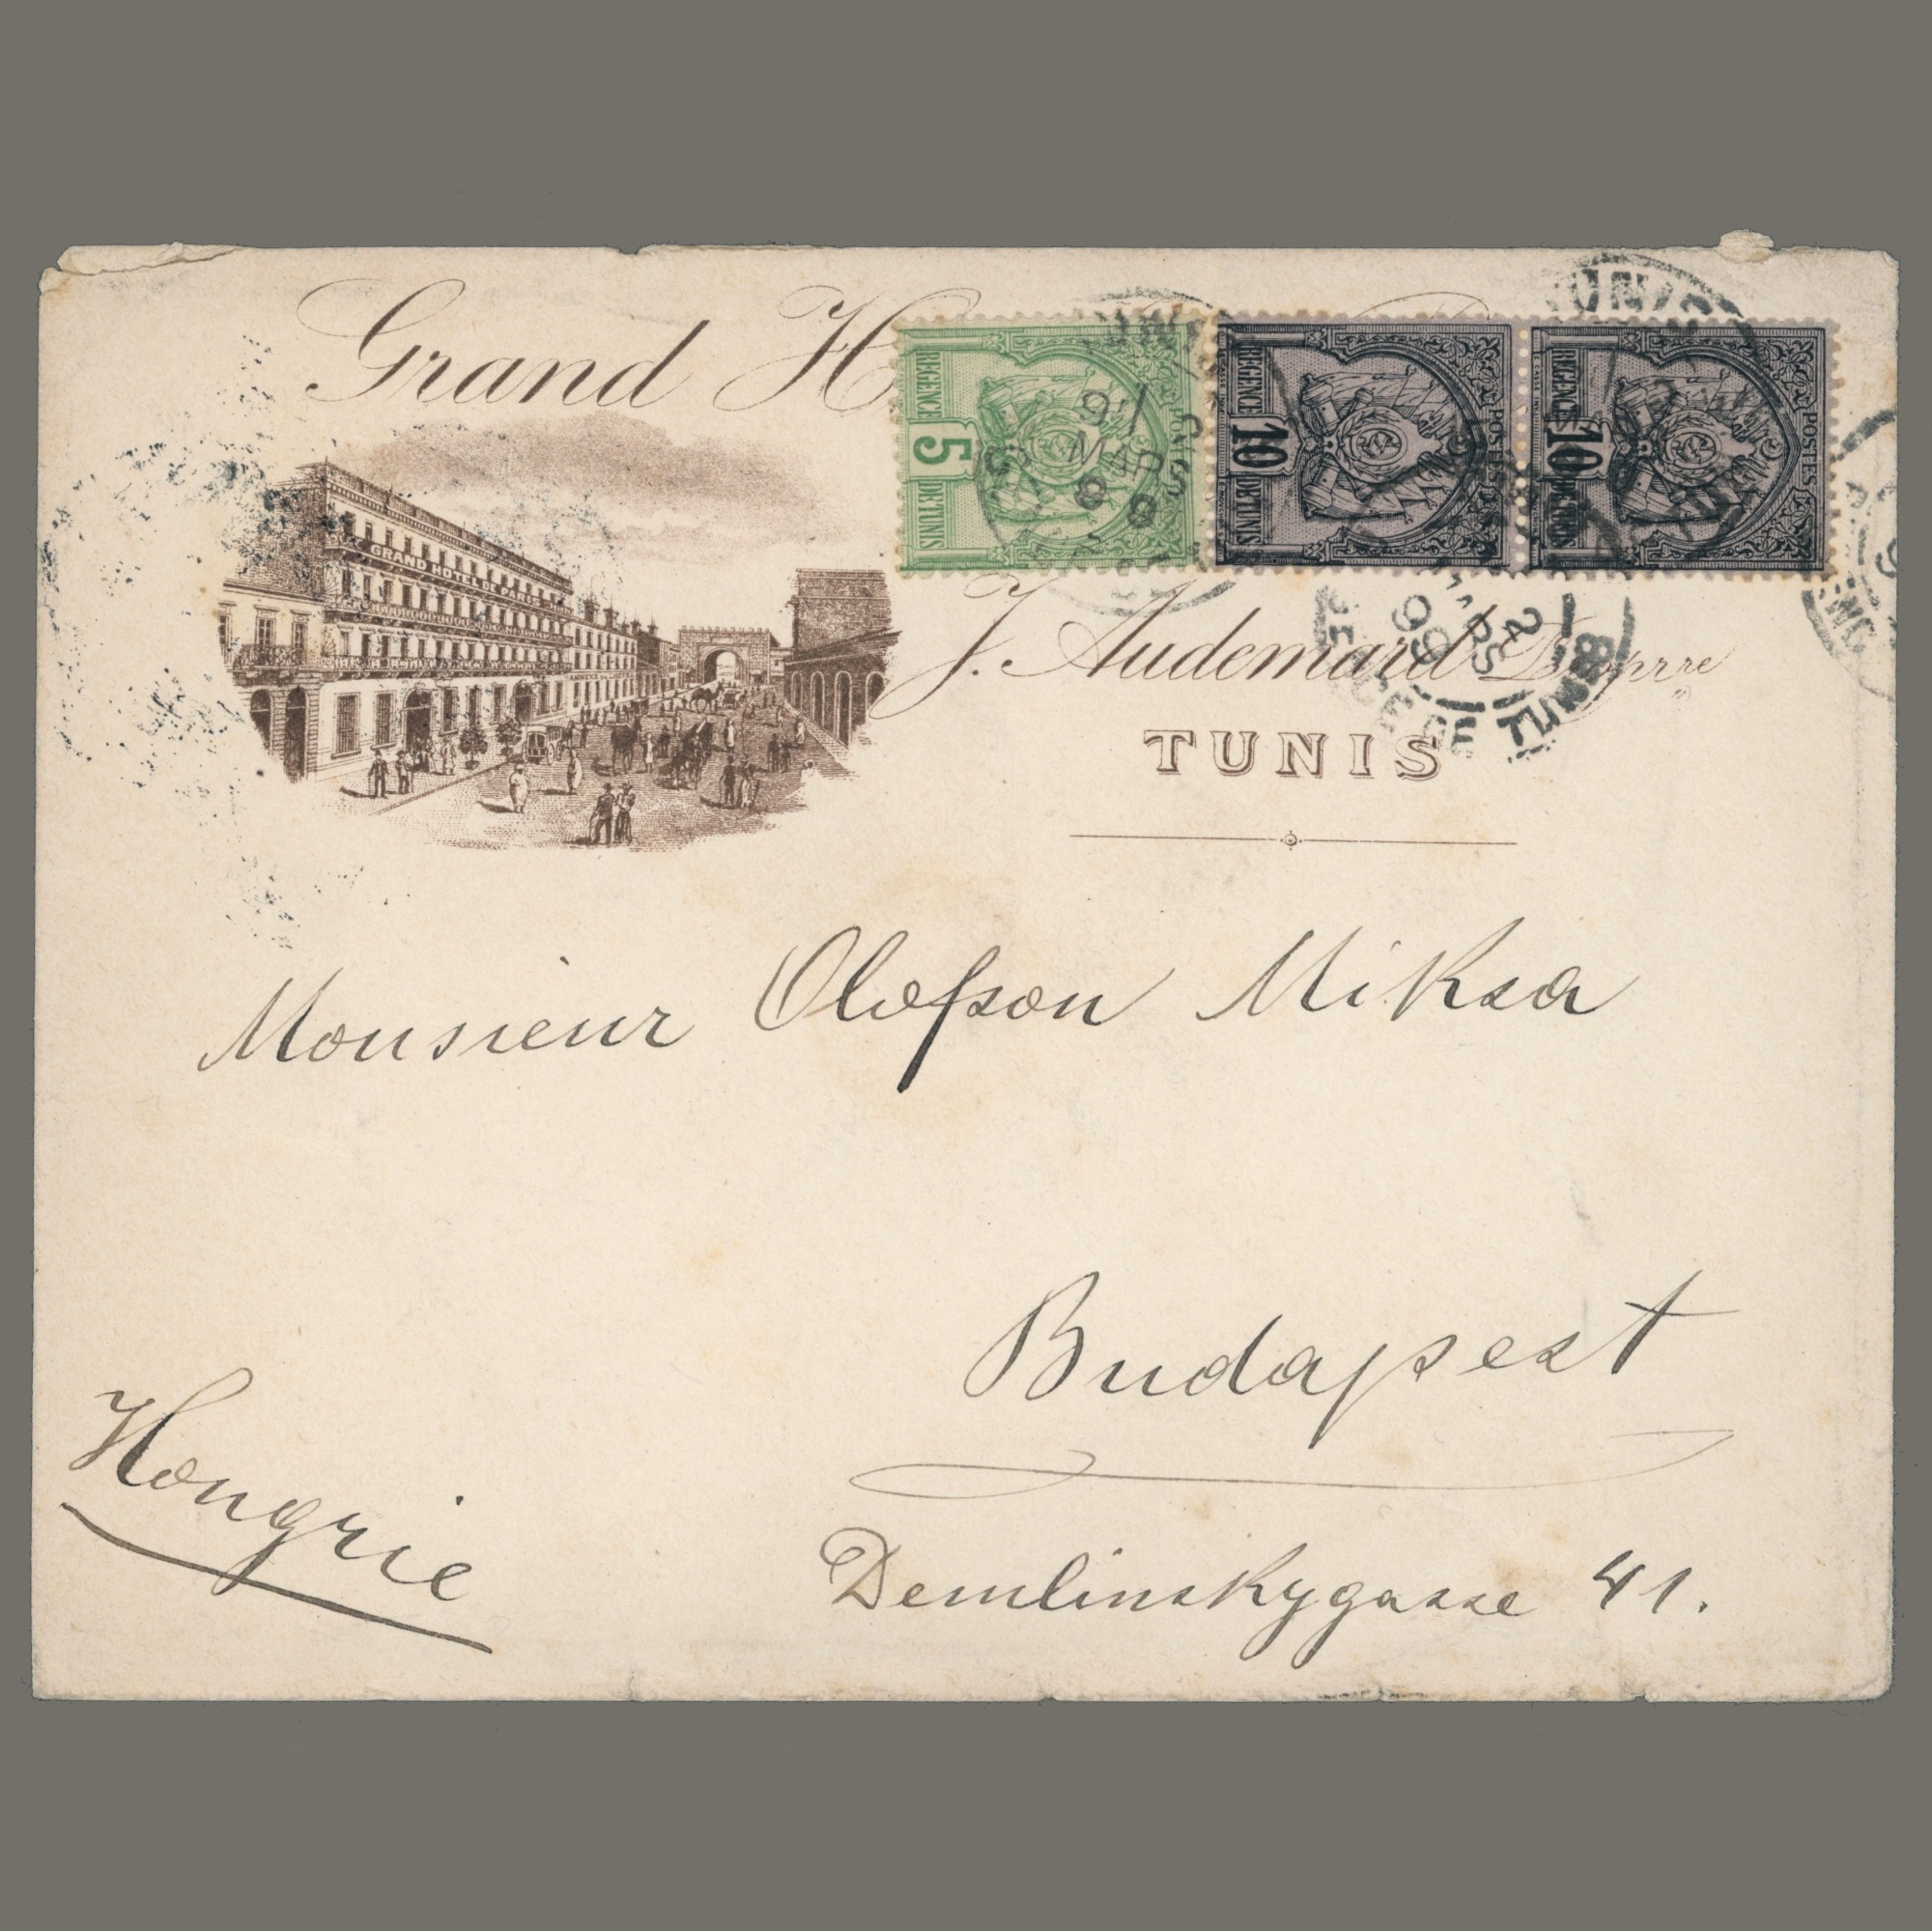 Grand H
GRAND HOTEL DE PARIS
ANNEXE
J. Audemard Propрre
TUNIS
REGENCE 5 DE TUNIS
POSTES REGENCE 10 DE TUNIS
POSTES REGENCE 10 DE TUNIS
MARS
99
REGENCE DE TUNIS
Monsieur Olofson Miksa
Budapest
Hongrie
Demlinskygasse 41.